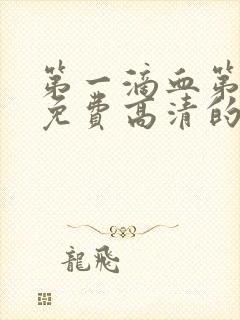 第一滴血第
免费高清的
龍飛